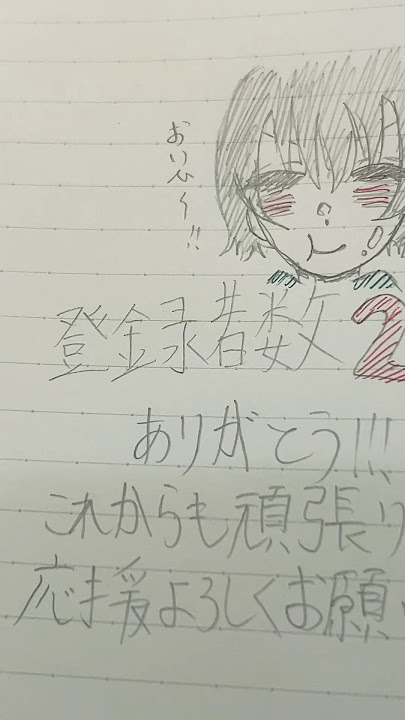 おいひー!!
登録者数2
ありがとう!!!
これからも頑張り
応援よろしくお願い